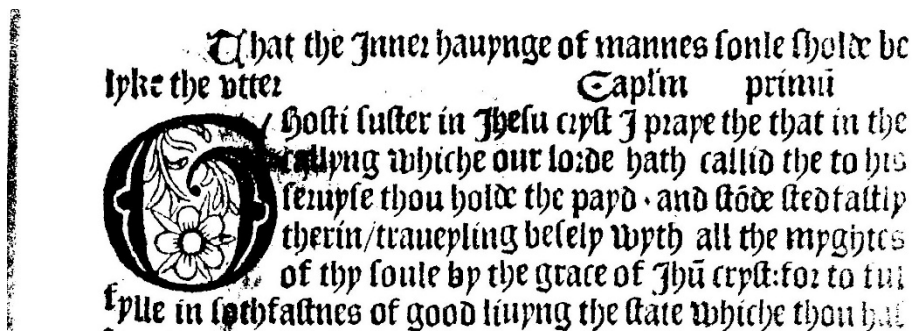 That the Inner hauynge of mannes sonle sholde be
lyke the vtter Caplm primū
GHosti suster in Jhesu cryst I praye the that in the
callyng whiche our lorde hath callid the to his
seruyse thou holde the payd · and stōde stedfastly
therin/traueyling besely wyth all the myghtes
of thy soule by the grace of Jhū cryst:for to ful
fylle in sothfastnes of good liuyng the state whiche thou hast